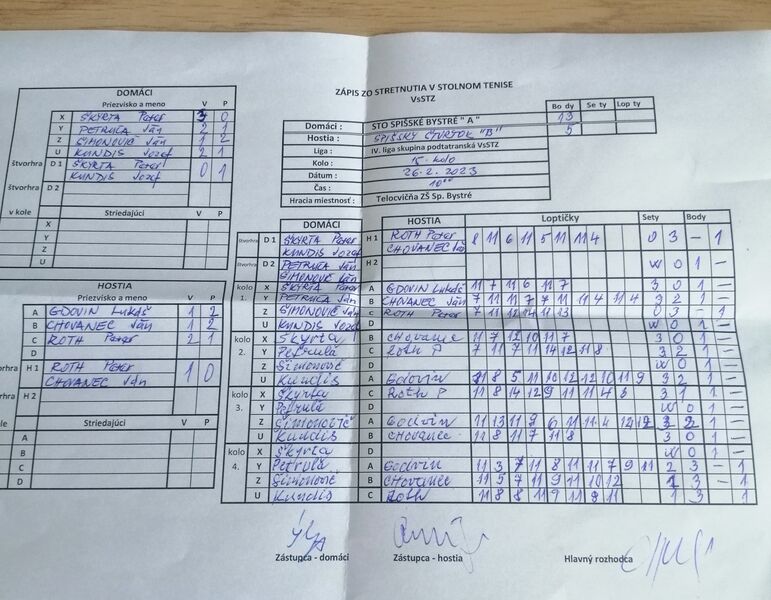 ZÁPIS ZO STRETNUTIA V STOLNOM TENISE
VsSTZ
Bo dy Se ty Lop ty
Domáci : STO SPIŠSKÉ BYSTRÉ "A" 13
Hostia : SPIŠSKÝ ŠTVRTOK "B" 5
Liga : IV. liga skupina podtatranská VsSTZ
Kolo : 15. kolo
Dátum : 26.2.2023
Čas : 10⁰⁰
Hracia miestnosť : Telocvičňa ZŠ Sp. Bystré
DOMÁCI
Priezvisko a meno V P
X ŠKYRTA Peter 3 0
Y PETRUĽA Ján 2 1
Z ŠIMONOVIČ Ján 1 2
U KUNDIS Jozef 2 1
štvorhra D 1 ŠKYRTA Peter 0 1
KUNDIS Jozef
štvorhra D 2
v kole Striedajúci V P
X
Y
Z
U
HOSTIA
Priezvisko a meno V P
A GDOVIN Lukáš 1 2
B CHOVANEC Ján 1 2
C ROTH Peter 2 1
D
H 1 ROTH Peter 1 0
CHOVANEC Ján
H 2
Striedajúci V P
A
B
C
D
DOMÁCI HOSTIA Loptičky Sety Body
štvorhra D 1 ŠKYRTA Peter H 1 ROTH Peter 8 11 6 11 5 11 11 4 0 3 – 1
KUNDIS Jozef CHOVANEC Ján
štvorhra D 2 PETRUĽA Ján H 2 W O 1 –
ŠIMONOVIČ Ján
kolo 1. X ŠKYRTA Peter A GDOVIN Lukáš 11 7 11 6 11 7 3 0 1 –
Y PETRUĽA Ján B CHOVANEC Ján 7 11 11 7 7 11 11 4 11 4 3 2 1 –
Z ŠIMONOVIČ Ján C ROTH Peter 7 11 12 14 11 13 0 3 – 1
U KUNDIS Jozef D W O 1 –
kolo 2. X Škyrta B CHOVANEC 11 7 12 10 11 7 3 0 1 –
Y Petruľa C Roth P 7 11 7 11 14 12 11 8 3 2 1 –
Z Šimonovič D W O 1 –
U Kundis A Gdovin 11 8 5 11 10 12 12 10 11 9 3 2 1 –
kolo 3. X Škyrta C Roth P 11 8 14 12 9 11 11 4 3 1 1 –
Y Petruľa D W O 1 –
Z Šimonovič A Godvin 11 13 11 9 6 11 11 4 3 2 1 –
U Kundis B CHOVANEC 11 8 11 7 11 8 3 0 1 –
kolo 4. X Škyrta D W O 1 –
Y Petruľa A Godvin 11 3 7 11 8 11 11 7 9 11 2 3 – 1
Z Šimonovič B CHOVANEC 11 5 7 11 9 11 10 12 1 3 – 1
U Kundis C Roth 11 8 8 11 9 11 9 11 1 3 – 1
Zástupca - domáci Zástupca - hostia Hlavný rozhodca